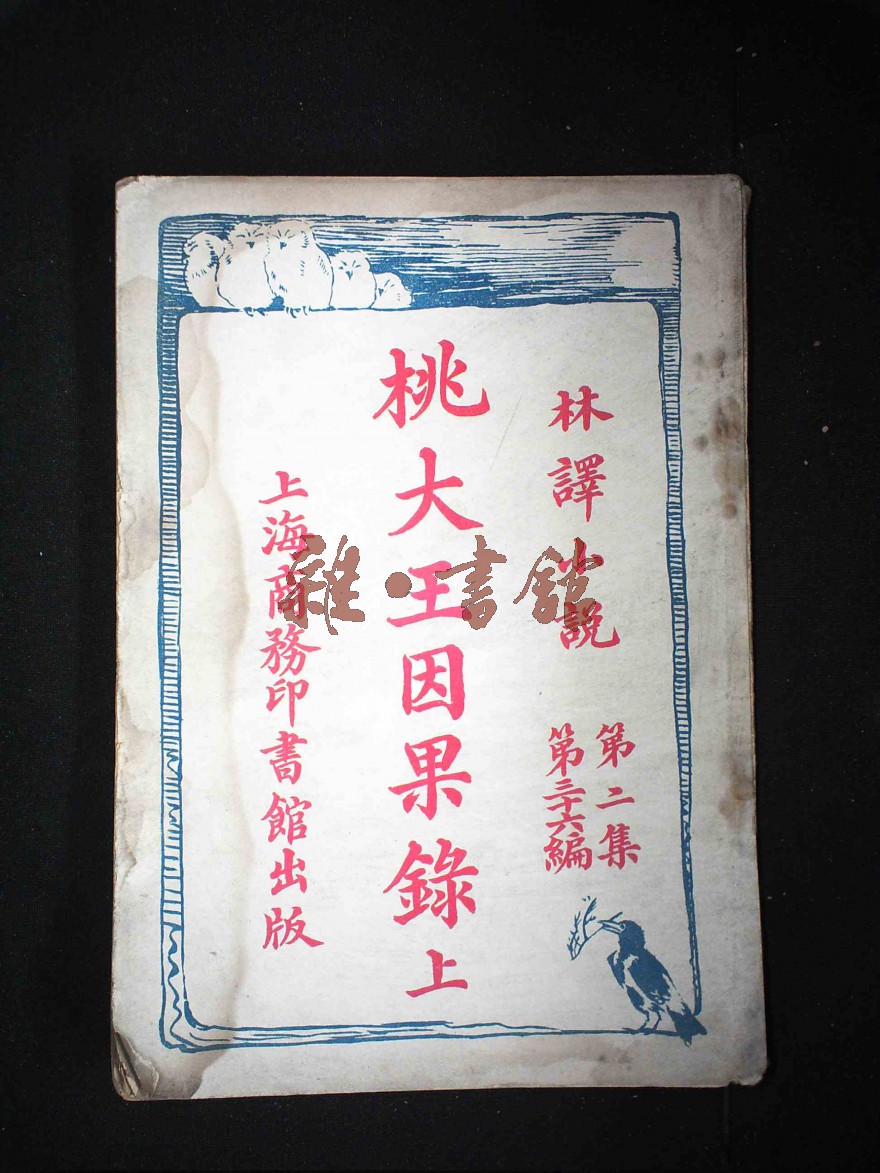 林譯小説
第二集
第三十六編
桃大王因果錄上
上海商務印書館出版
雜·書館